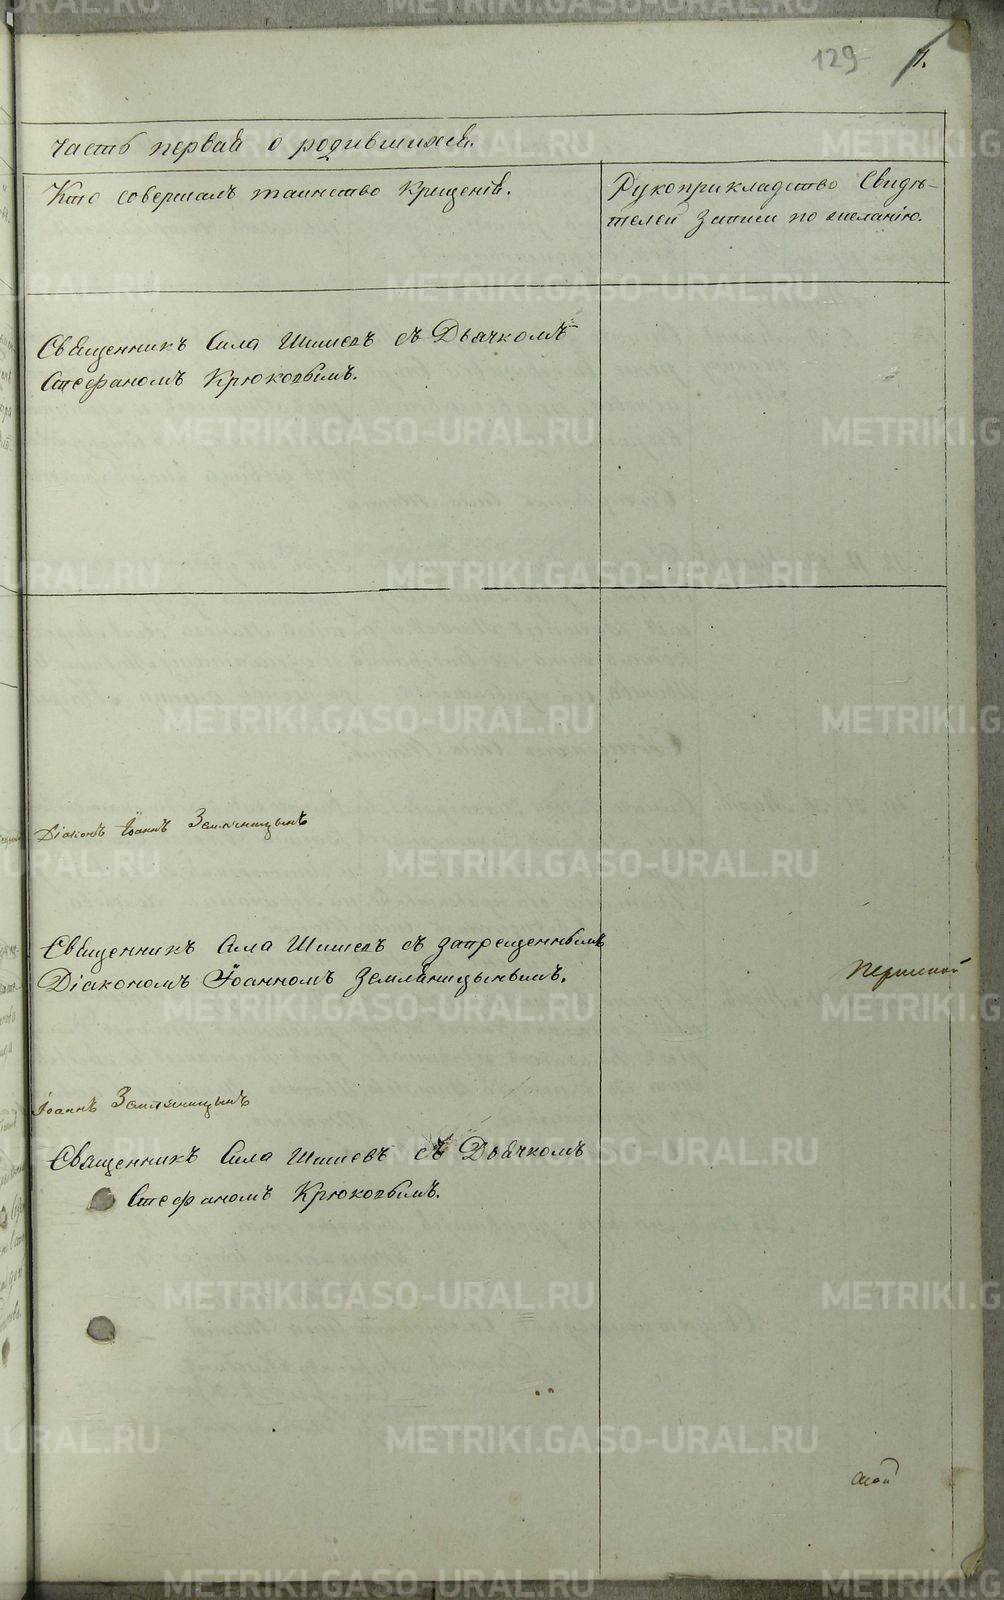 129
1.
Часть первая о родившихся.
Кто совершалъ таинство крещенія.
Рукоприкладство Свидѣ-
телей записи по желанію.
Священникъ Сила Шишевъ съ Дьячкомъ
Стефаномъ Крюковымъ.
Діаконъ Іоаннъ Земляницынъ
Священникъ Сила Шишевъ съ запрещеннымъ
Діакономъ Іоанномъ Земляницынымъ.
Іоаннъ Земляницынъ
Священникъ Сила Шишевъ съ Дьячкомъ
Стефаномъ Крюковымъ.
METRIKI.GASO-URAL.RU